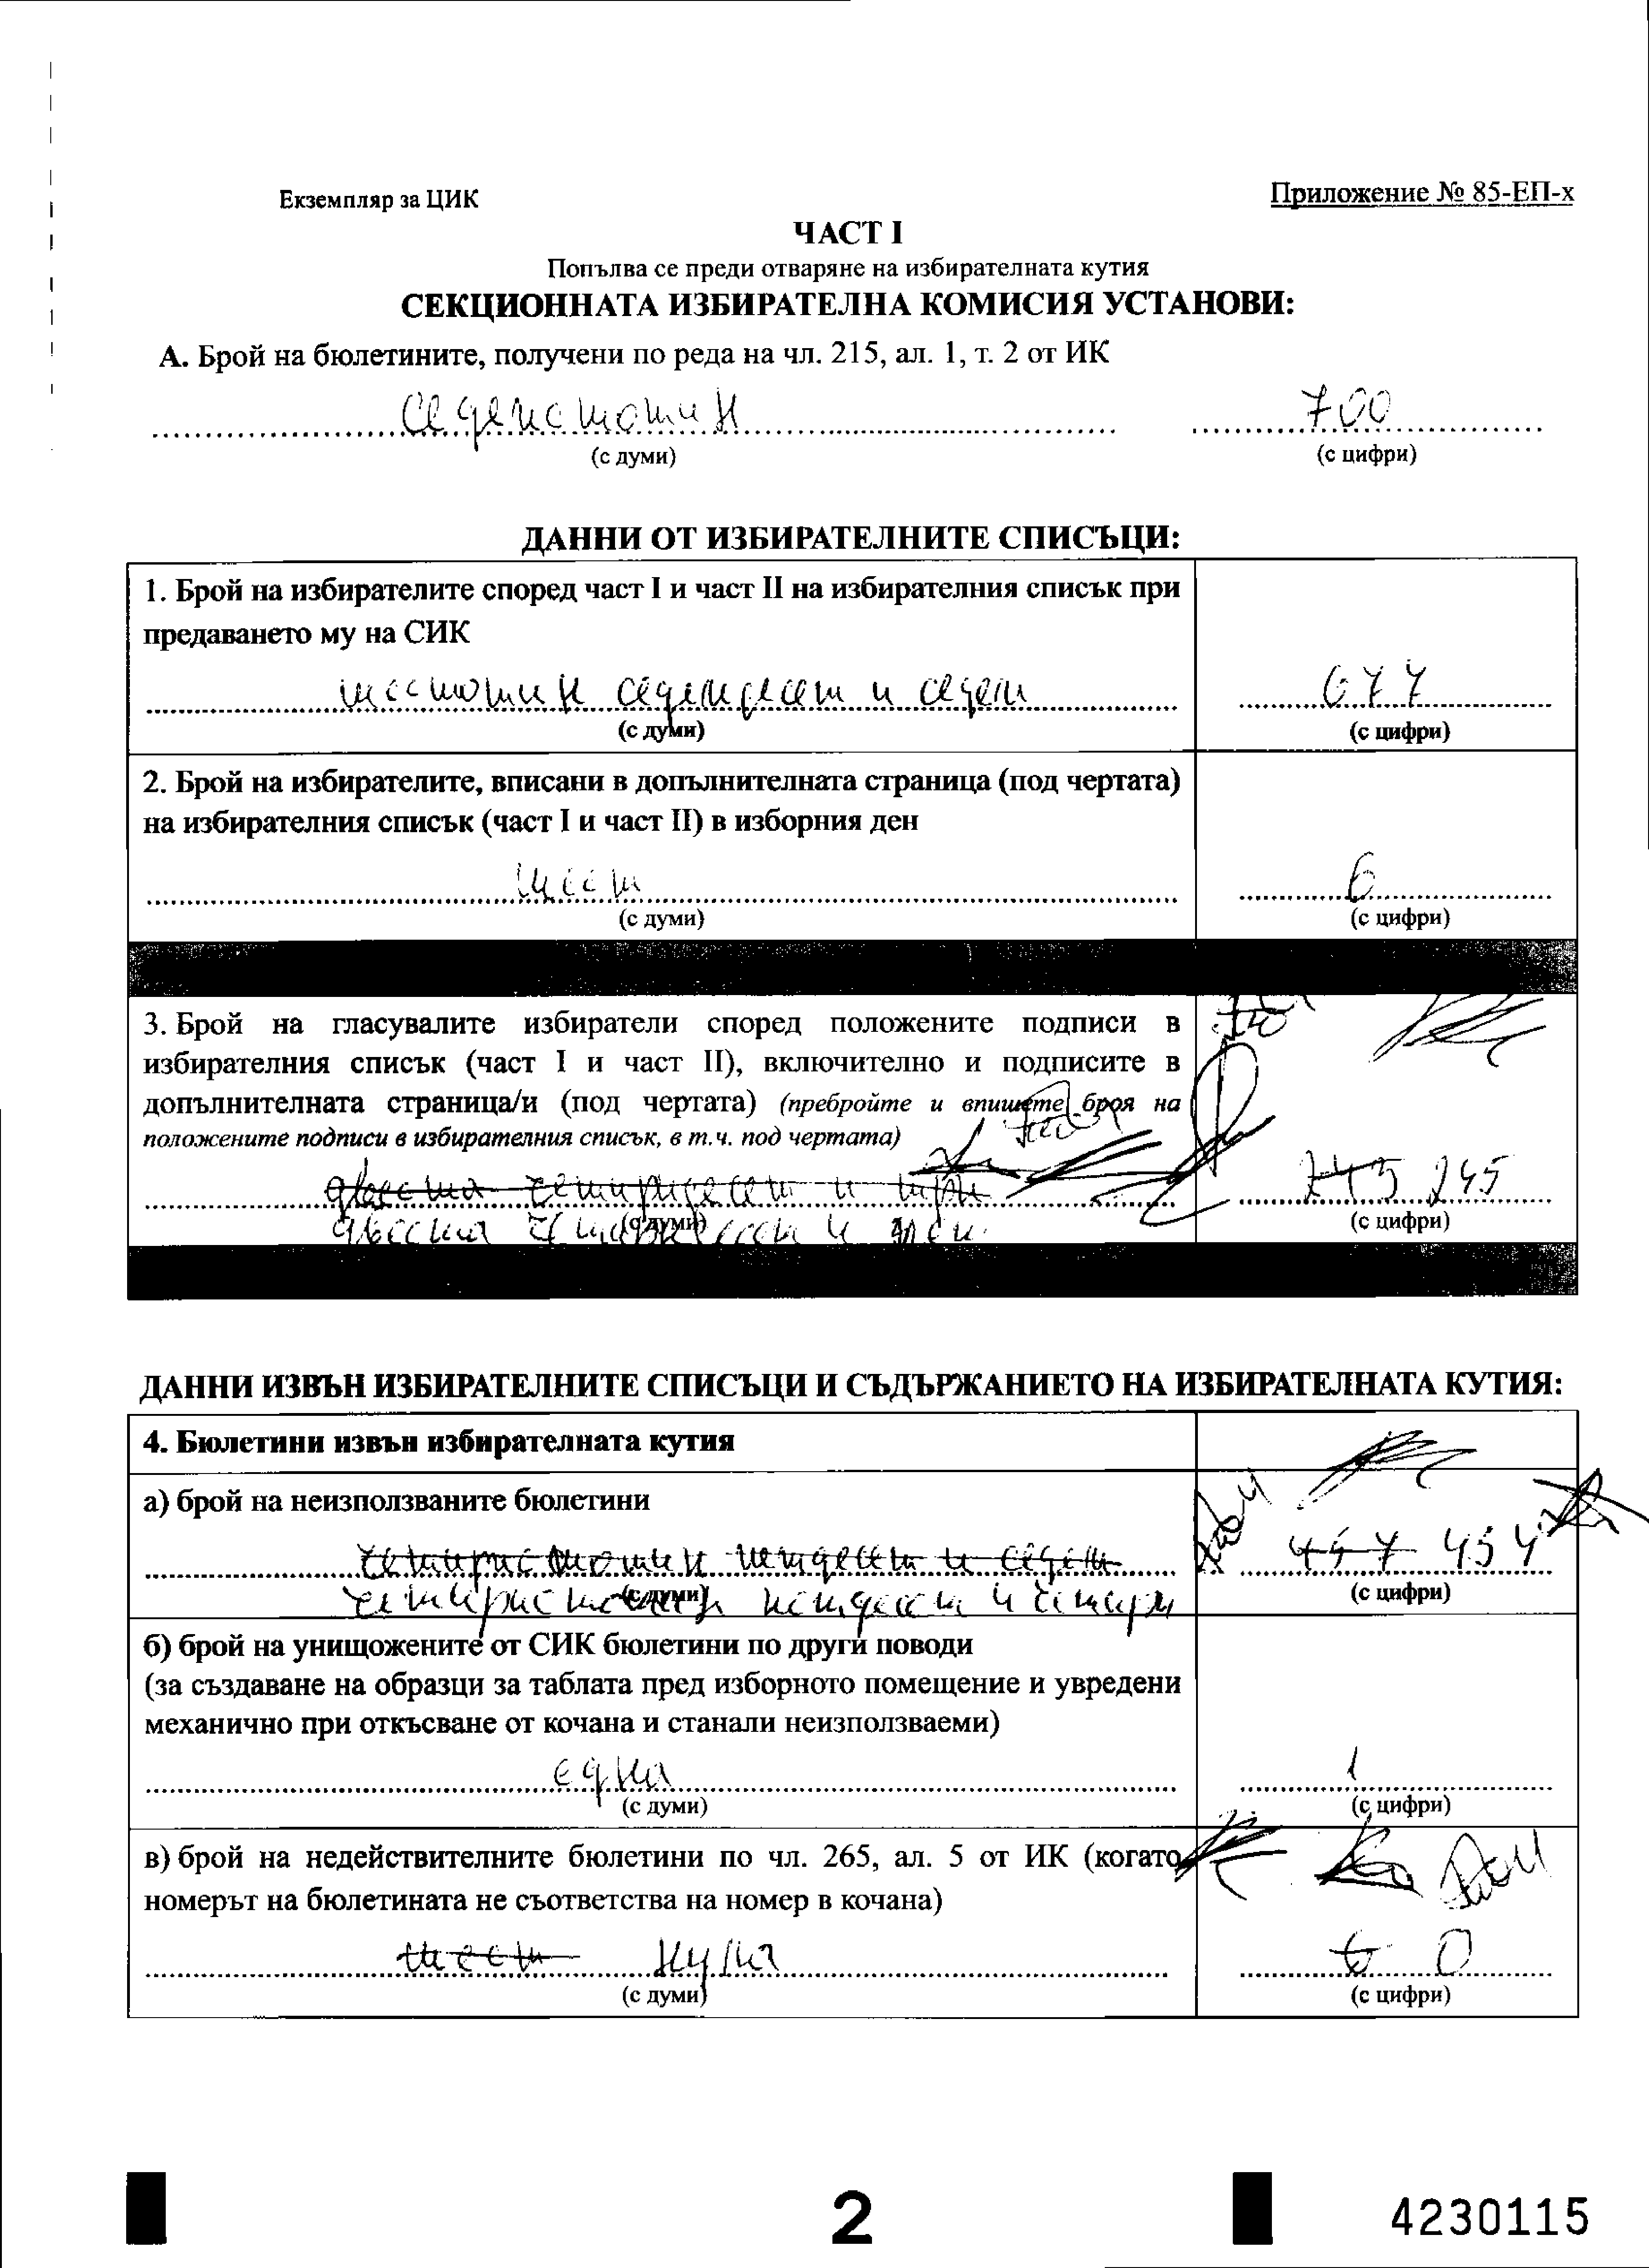 Екземпляр за ЦИК
Приложение № 85-ЕП-х
ЧАСТ I
Попълва се преди отваряне на избирателната кутия
СЕКЦИОННАТА ИЗБИРАТЕЛНА КОМИСИЯ УСТАНОВИ:
А. Брой на бюлетините, получени по реда на чл. 215, ал. 1, т. 2 от ИК
Седемстотин 700
(с думи) (с цифри)
ДАННИ ОТ ИЗБИРАТЕЛНИТЕ СПИСЪЦИ:
1. Брой на избирателите според част I и част II на избирателния списък при
предаването му на СИК
шестотин седемдесет и седем 677
(с думи) (с цифри)
2. Брой на избирателите, вписани в допълнителната страница (под чертата)
на избирателния списък (част I и част II) в изборния ден
шест 6
(с думи) (с цифри)
3. Брой на гласувалите избиратели според положените подписи в
избирателния списък (част I и част II), включително и подписите в
допълнителната страница/и (под чертата) (пребройте и впишете броя на
положените подписи в избирателния списък, в т.ч. под чертата)
двеста четиридесет и три 245
(с думи) (с цифри)
двеста четиридесет и
ДАННИ ИЗВЪН ИЗБИРАТЕЛНИТЕ СПИСЪЦИ И СЪДЪРЖАНИЕТО НА ИЗБИРАТЕЛНАТА КУТИЯ:
4. Бюлетини извън избирателната кутия
а) брой на неизползваните бюлетини
четиристотин петдесет и седем 457 454
(с думи) (с цифри)
четиристотин петдесет и четири
б) брой на унищожените от СИК бюлетини по други поводи
(за създаване на образци за таблата пред изборното помещение и увредени
механично при откъсване от кочана и станали неизползваеми)
една 1
(с думи) (с цифри)
в) брой на недействителните бюлетини по чл. 265, ал. 5 от ИК (когато
номерът на бюлетината не съответства на номер в кочана)
шест нула 6 0
(с думи) (с цифри)
2
4230115